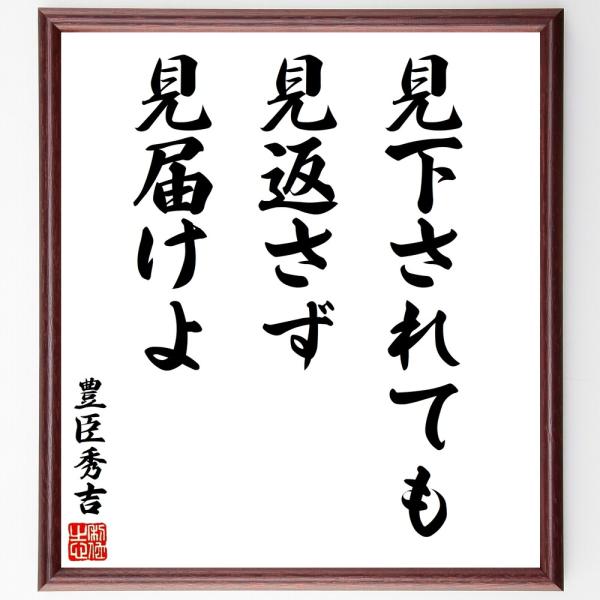 見下されても
見返さず
見届けよ
豊臣秀吉